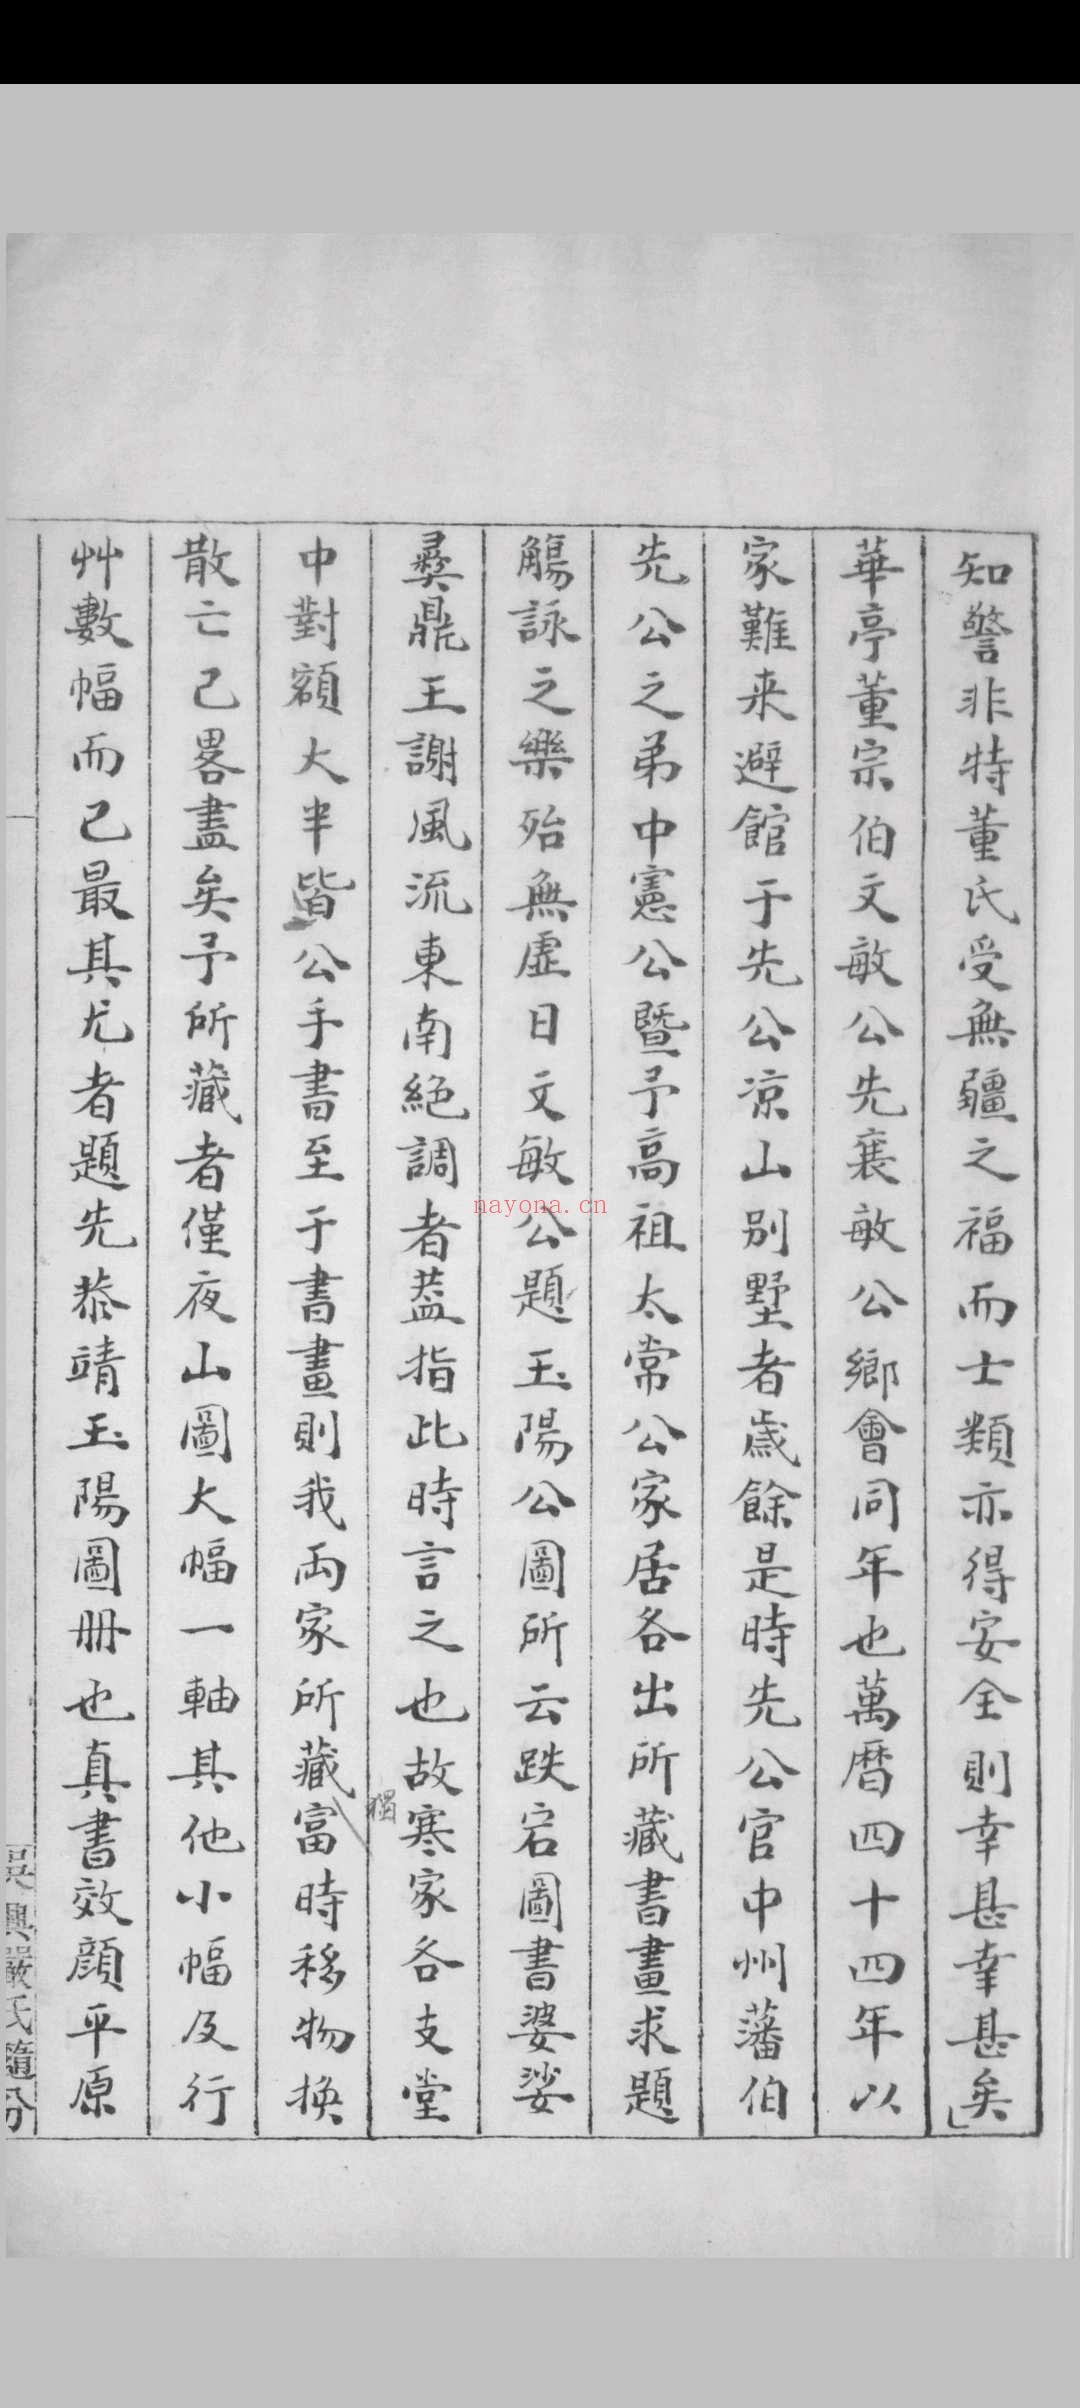 知警非特董氏受無疆之福而士類亦得安全則幸甚幸甚矣
華亭董宗伯文敏公先襄敏公鄉會同年也萬曆四十四年以
家難来避館于先公凉山别墅者歲餘是時先公官中州藩伯
先公之弟中憲公暨予高祖太常公家居各出所藏書畫求題
觴詠之樂殆無虛日文敏公題玉陽公圖所云跌宕圖書婆娑
彛鼎王謝風流東南絕調者葢指此時言之也故寒家各支堂
中對額大半皆公手書至于書畫則我兩家所藏獨富時移物換
散亡已畧盡矣予所藏者僅夜山圖大幅一軸其他小幅及行
艸數幅而已最其尤者題先恭靖玉陽圖冊也真書效顔平原
吳興嚴氏隨分
nayona.cn